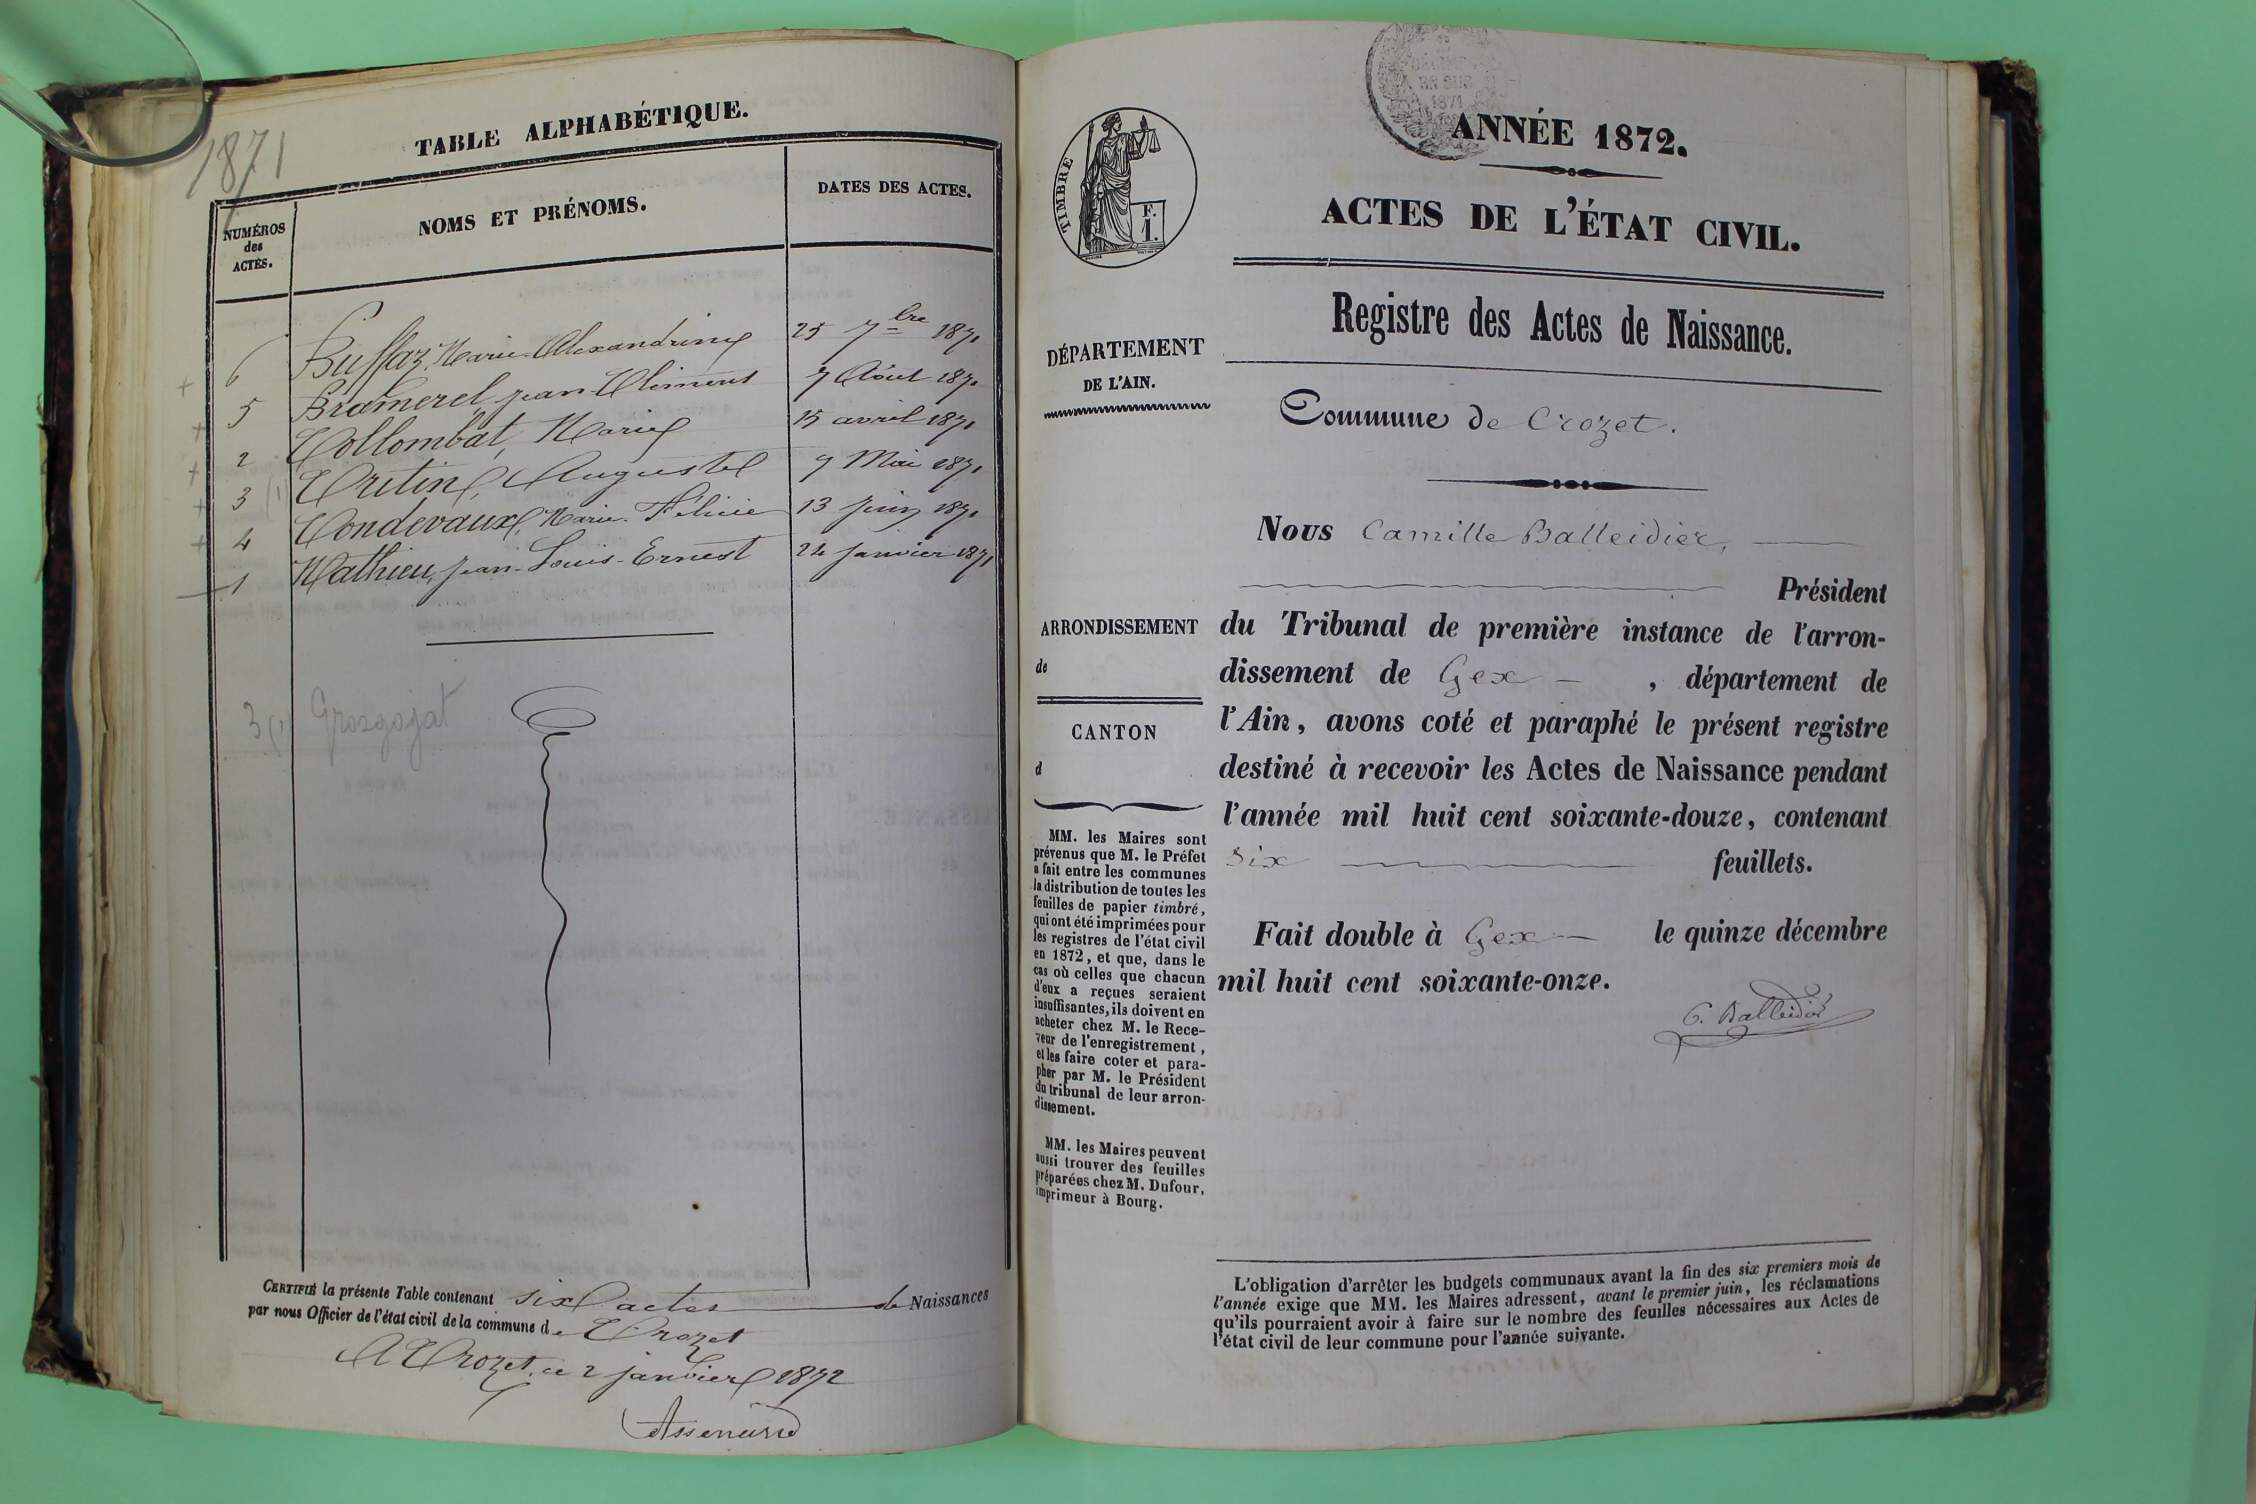 1871
TABLE ALPHABÉTIQUE.
NUMÉROS
des
ACTES.
NOMS ET PRÉNOMS.
DATES DES ACTES.
6 Buffaz, Marie-Alexandrine 25 7bre 1871
5 Bramerel, jean-Clément 7 Août 1871
2 Collombat, Marie 15 avril 1871
3 (1) Critin, Auguste 9 Mai 1871
4 Condevaux, Marie-Félicie 13 juin 1871
1 Mathieu, jean-Louis-Ernest 24 janvier 1871
3 (1) Grosgojat
CERTIFIÉ la présente Table contenant six actes de Naissances
par nous Officier de l'état civil de la commune de Crozet
A Crozet, ce 2 janvier 1872
EN SUS
1871
TIMBRE
F.
1.
ANNÉE 1872.
ACTES DE L'ÉTAT CIVIL.
Registre des Actes de Naissance.
DÉPARTEMENT
DE L'AIN.
Commune de Crozet.
Nous Camille Balleidier,
Président
ARRONDISSEMENT
de
CANTON
d
du Tribunal de première instance de l'arron-
dissement de Gex , département de
l'Ain, avons coté et paraphé le présent registre
destiné à recevoir les Actes de Naissance pendant
l'année mil huit cent soixante-douze, contenant
six feuillets.
Fait double à Gex le quinze décembre
mil huit cent soixante-onze.
C. Balleidier
MM. les Maires sont
prévenus que M. le Préfet
a fait entre les communes
la distribution de toutes les
feuilles de papier timbré,
qui ont été imprimées pour
les registres de l'état civil
en 1872, et que, dans le
cas où celles que chacun
d'eux a reçues seraient
insuffisantes, ils doivent en
acheter chez M. le Rece-
veur de l'enregistrement,
et les faire coter et para-
pher par M. le Président
du tribunal de leur arron-
dissement.
MM. les Maires peuvent
aussi trouver des feuilles
préparées chez M. Dufour,
imprimeur à Bourg.
L'obligation d'arrêter les budgets communaux avant la fin des six premiers mois de
l'année exige que MM. les Maires adressent, avant le premier juin, les réclamations
qu'ils pourraient avoir à faire sur le nombre des feuilles nécessaires aux Actes de
l'état civil de leur commune pour l'année suivante.